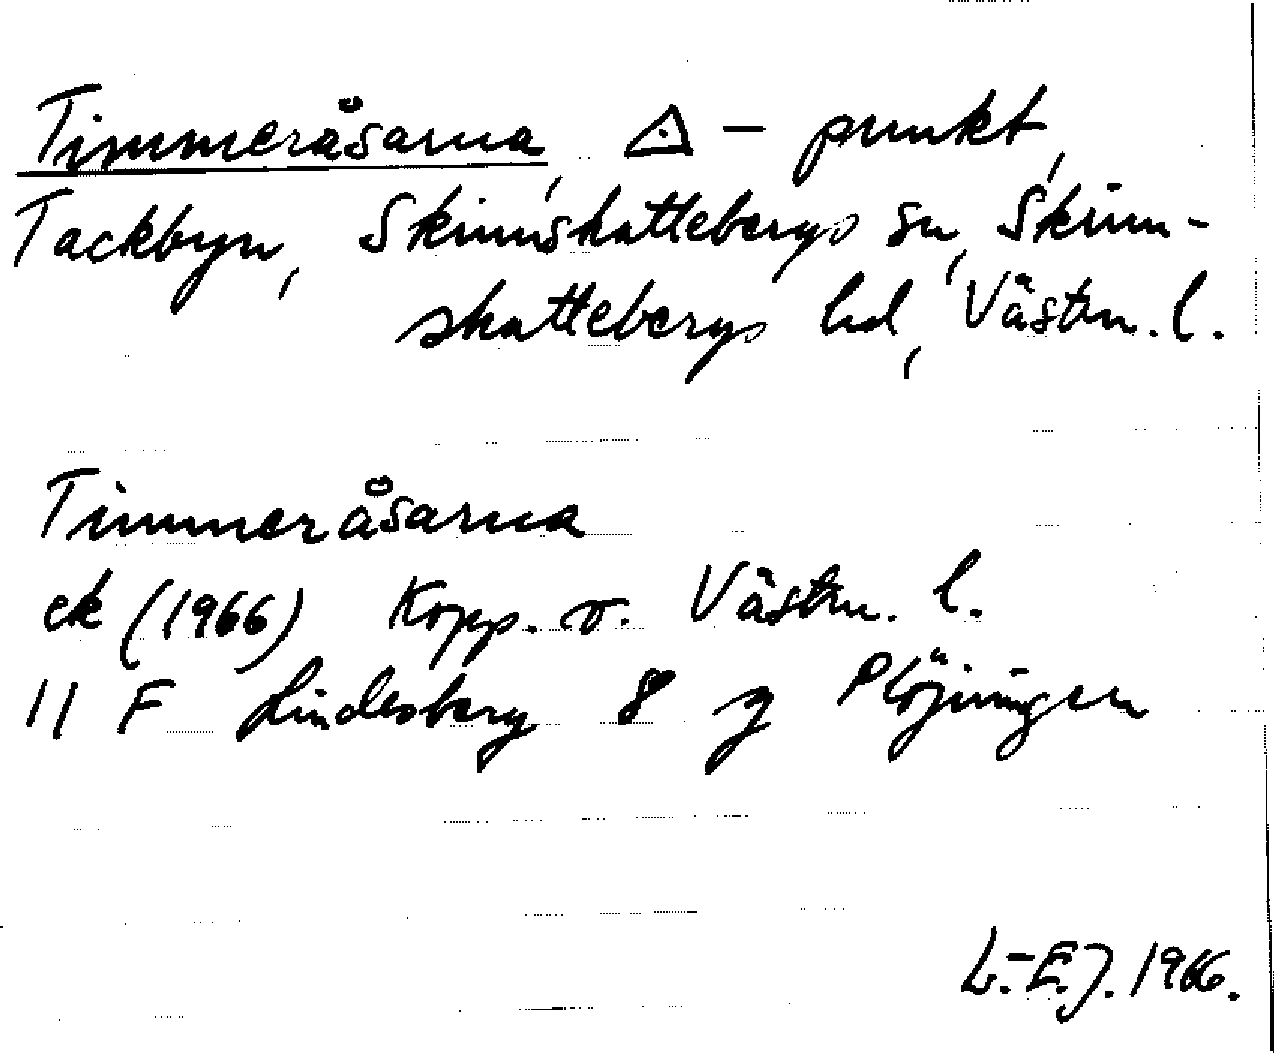 Timmeråsarna, △ - punkt,
Tackbyn, Skinnskattebergs sn, Skinn-
skattebergs hd, Västm. l.
Timmeråsarna
ek (1966) Kopp. o. Västm. l.
11 F Lindesberg 8 g Plöjningen
L.-E.J. 1966.